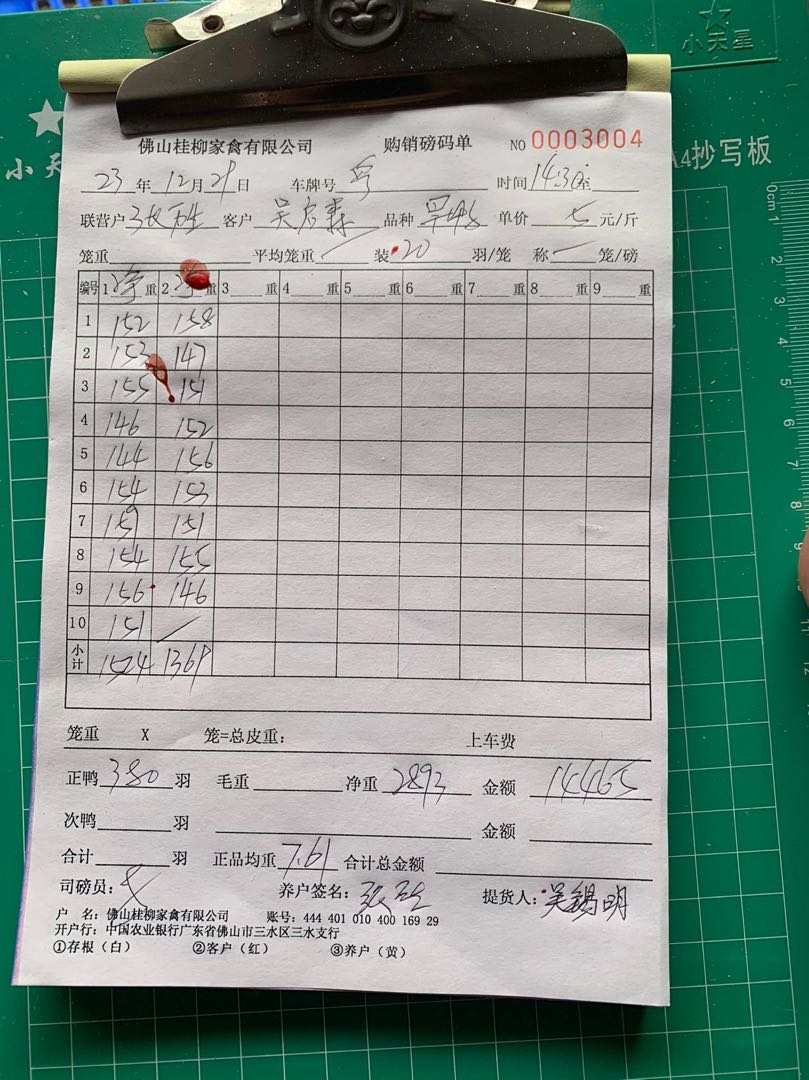 小天星
小天
A4抄写板
佛山桂柳家禽有限公司 购销磅码单 NO 0003004
23年12月29日 车牌号 时间14:30至
联营户 客户 吴启森 品种 单价 5 元/斤
笼重 平均笼重 / 装 20 羽/笼 称 — 笼/磅
编号 1 净 重 2 净 重 3 重 4 重 5 重 6 重 7 重 8 重 9 重
1 152 158
2 153 147
3 155 151
4 146 152
5 144 156
6 154 153
7 159 151
8 154 155
9 156 146
10 151 /
小计 1524 1369
笼重 X 笼=总皮重: 上车费
正鸭 380 羽 毛重 净重 2893 金额 14465
次鸭 羽 金额
合计 羽 正品均重 7.61 合计总金额
司磅员: 养户签名: 提货人: 吴锡明
户 名: 佛山桂柳家禽有限公司 账号: 444 401 010 400 169 29
开户行: 中国农业银行广东省佛山市三水区三水支行
①存根（白） ②客户（红） ③养户（黄）
0cm 1
2
3
4
5
6
7
8
9
12